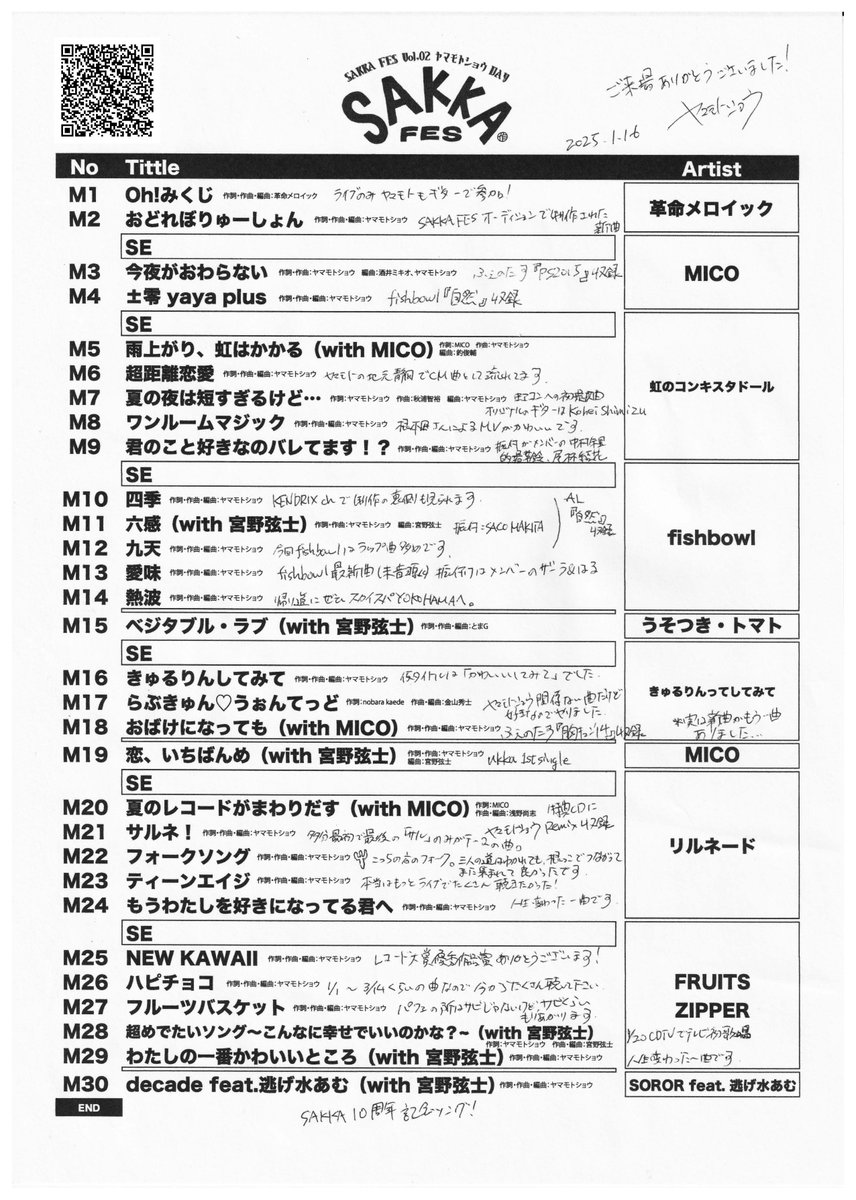 SAKKA FES Vol.02 ヤマモトショウ DAY
SAKKA
FES
ご来場ありがとうございました!
ヤマモトショウ
2025.1.16
No Tittle Artist
M1 Oh!みくじ 作詞・作曲・編曲:革命メロイック ライブのみ ヤマモトもギターで参加!
革命メロイック
M2 おどれぽりゅーしょん 作詞・作曲・編曲:ヤマモトショウ SAKKA FES オーディションで制作された新曲
SE
M3 今夜がおわらない 作詞・作曲:ヤマモトショウ 編曲:酒井ミキオ、ヤマモトショウ ふぇのたす『PS2015』収録
MICO
M4 ±零 yaya plus 作詞・作曲・編曲:ヤマモトショウ fishbowl『自然』収録
SE
M5 雨上がり、虹はかかる(with MICO) 作詞:MICO 作曲:ヤマモトショウ 編曲:釣俊輔
M6 超距離恋愛 ヤマモトの地元静岡でCM曲として流れてます.
虹のコンキスタドール
M7 夏の夜は短すぎるけど… 作詞:ヤマモトショウ 作曲:秋浦智裕 編曲:ヤマモトショウ 虹コンへの初提供曲
オリジナルのギターはKohei Shimizu
M8 ワンルームマジック 作詞・作曲・編曲:ヤマモトショウ MVがかわいいです.
M9 君のこと好きなのバレてます!? 作詞・作曲・編曲:ヤマモトショウ 振付がメンバーの
SE
M10 四季 作詞・作曲・編曲:ヤマモトショウ KENDRIX chで制作の裏側も見られます.
M11 六感(with 宮野弦士) 作詞・作曲:ヤマモトショウ 編曲:宮野弦士 振付:SACO MAKITA
AL『自然』収録
fishbowl
M12 九天 作詞・作曲・編曲:ヤマモトショウ 今回fishbowlはラップ曲多めです.
M13 愛味 作詞・作曲・編曲:ヤマモトショウ fishbowl最新曲(未音源) 振付けはメンバーのザーラ&はる
M14 熱波 作詞・作曲・編曲:ヤマモトショウ 帰り道にぜひスカイスパYOKOHAMAへ。
M15 ベジタブル・ラブ(with 宮野弦士) 作詞・作曲・編曲:とまG うそつき・トマト
SE
M16 きゅるりんしてみて 作詞・作曲・編曲:ヤマモトショウ 仮タイトルは「かわいいしてみて」でした.
きゅるりんってしてみて
M17 らぶきゅん♡うぉんてっど 作詞:nobara kaede 作曲・編曲:金山秀士 ヤマモトショウ関係ない曲だけど
好きなのでやりました.
実は新曲がもう一曲ありました…
M18 おばけになっても(with MICO) 作詞・作曲・編曲:ヤマモトショウ ふぇのたす『胸キュン'14』収録
M19 恋、いちばんめ(with 宮野弦士) 作詞・作曲:ヤマモトショウ 編曲:宮野弦士 ukka 1st single MICO
SE
M20 夏のレコードがまわりだす(with MICO) 作詞:MICO 作曲・編曲:浅野尚志 CDに
ヤマモトショウ Remix収録
M21 サルネ! 作詞・作曲・編曲:ヤマモトショウ 多分最初で最後の「サル」のみがテーマの曲。
リルネード
M22 フォークソング 作詞・作曲・編曲:ヤマモトショウ こっちの方のフォーク。三人の道はわかれても、根っこでつながって
また集まれて良かったです
M23 ティーンエイジ 作詞・作曲・編曲:ヤマモトショウ 本当はもっとライブでたくさん聴きたかった!
M24 もうわたしを好きになってる君へ 作詞・作曲・編曲:ヤマモトショウ 人生変わった一曲です.
SE
M25 NEW KAWAII 作詞・作曲・編曲:ヤマモトショウ レコード大賞優秀作品賞ありがとうございます!
M26 ハピチョコ 作詞・作曲・編曲:ヤマモトショウ 1/1〜3/14くらいの曲なので今のうちたくさん聴いて下さい.
FRUITS
ZIPPER
M27 フルーツバスケット 作詞・作曲・編曲:ヤマモトショウ パフェの所はサビじゃないけどサビくらい
もりあがります.
M28 超めでたいソング〜こんなに幸せでいいのかな?〜(with 宮野弦士)
作詞・作曲:ヤマモトショウ 作曲・編曲:宮野弦士
1/20 CDTVでテレビ初披露
M29 わたしの一番かわいいところ(with 宮野弦士) 作詞・作曲・編曲:ヤマモトショウ 人生変わった一曲です.
M30 decade feat.逃げ水あむ(with 宮野弦士) 作詞・作曲・編曲:ヤマモトショウ SOROR feat. 逃げ水あむ
END
SAKKA 10周年記念ソング!